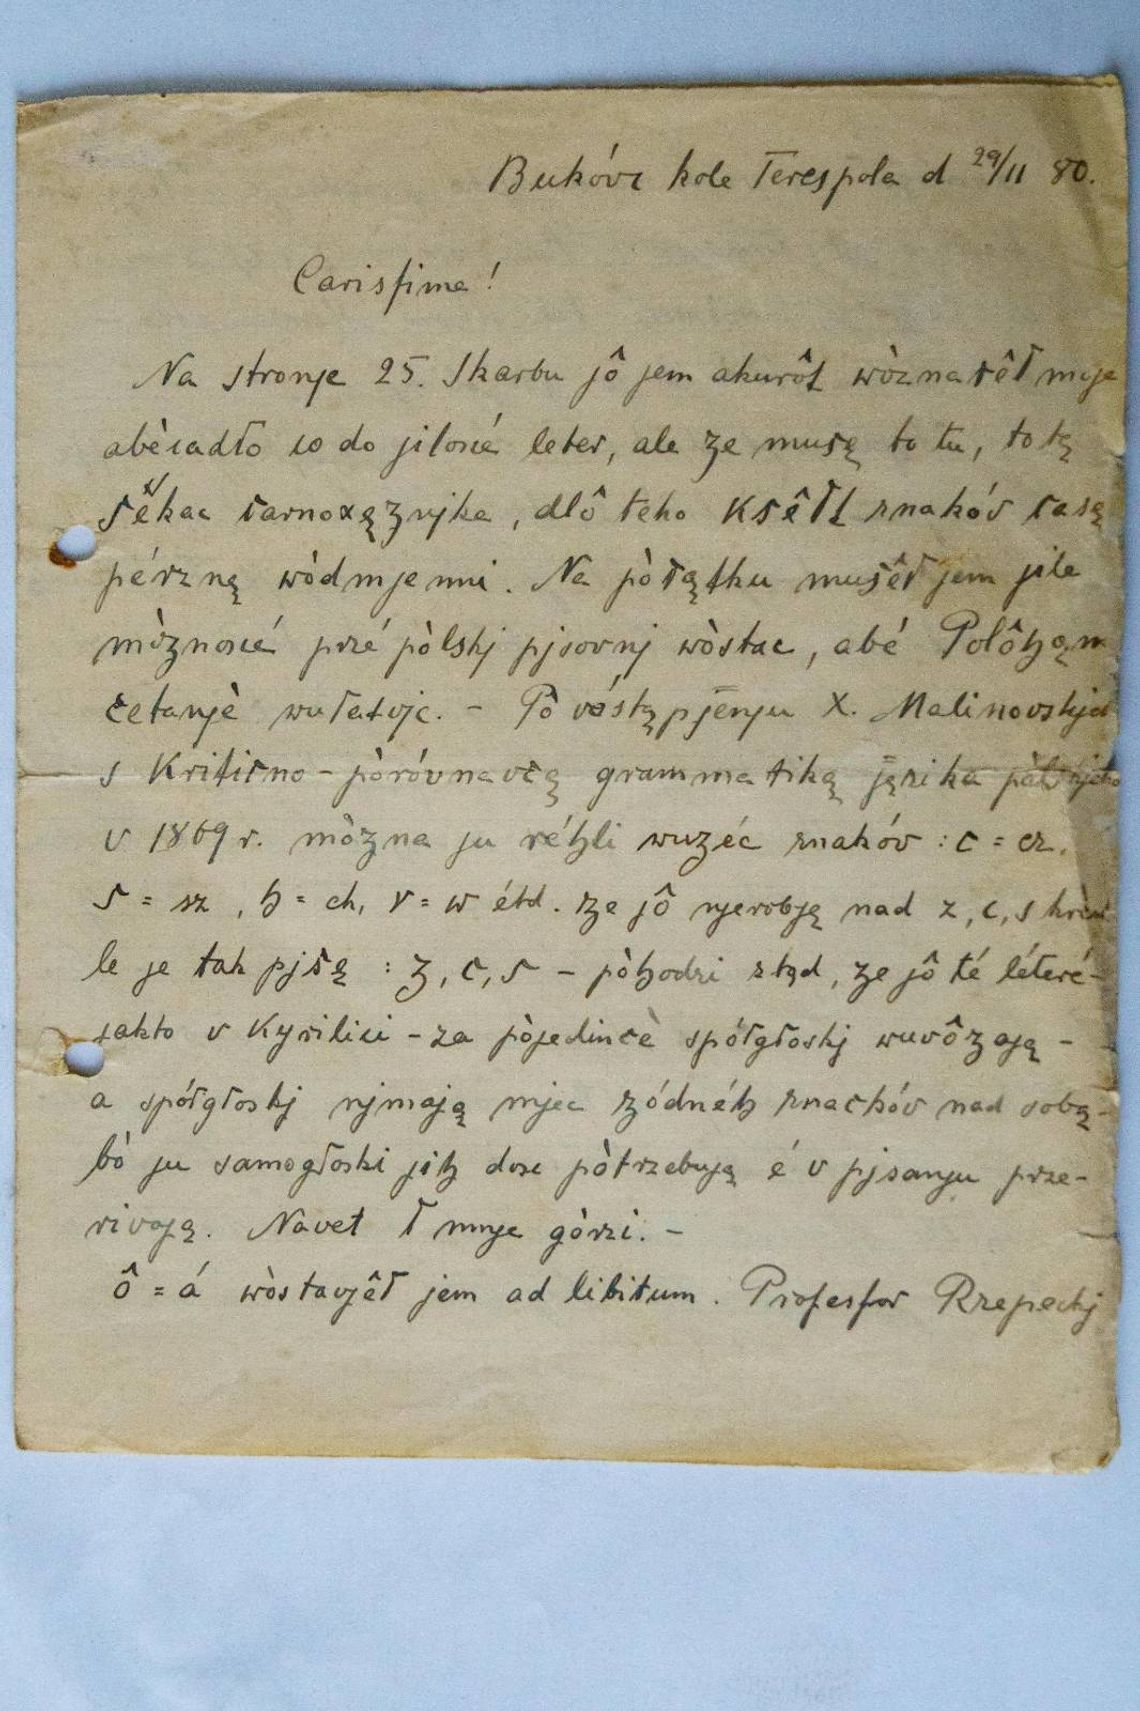 Bukóvc kole Terespola d 29/11 80.
Carisſime!
Na stronje 25. Skarbu jô jem akurôt wòznaczêł moje
abècadło co do jiloscé leter, ale ʒe muszą to tu, to tą
szëkac czarnoxęʒnjka, dlô teho kszêłt znakóv czasą
pérzną wòdmjenni. Na pòcząthu muszêł jem jile
mòʒnoscé przé pòlskj pjsovnj wòstac, abé Polôhom
czetanjè wułatvjc. - Pò vëstąpjenju X. Malinovskjeh
s Kriticzno - pòróvnavczą grammatiką jęzika pòlskjeho
v 1869 r. mòʒna ju réhli wuʒéc znakóv : c = cz,
ſ = sz, ɧ = ch, v = w étd. ʒe jô njerobją nad z, c, s
le je tak pjszą : ʒ, c, ſ - pòɧodzi ztąd, ʒe jô té léteré -
jakto v Kyrilici - za pòjedinczè spółgłoskj wuvôʒają -
a spółgłoskj njmają mjec ʒódnéɧ znachóv nad sobą -
bò ju samogłoski jiɧ dosc pòtrzebują é v pjsanju prze-
rivają. Navet ł mnje górzi. -
ô = á wòstavjêł jem ad libitum. Profesſor Rzepeckj